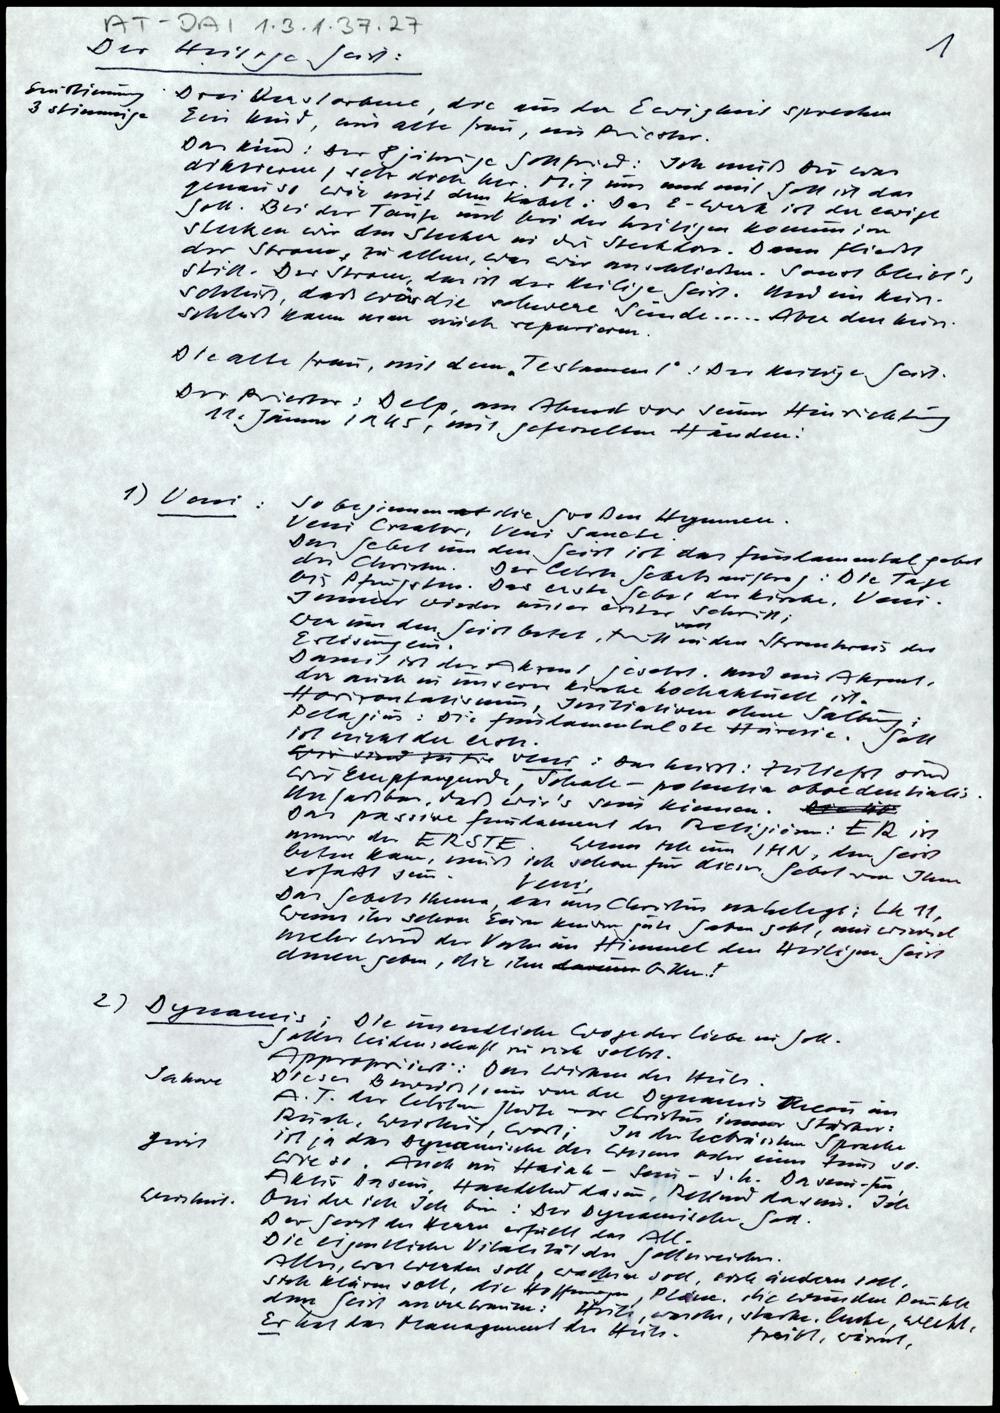 AT-DAI 1.3.1.37.27
1
Der Heilige Geist:
Einstimmung
3 stimmige
Drei Verstorbene, die aus der Ewigkeit sprechen
Ein Kind, eine alte Frau, ein Priester.
Das Kind: Der 8jährige Gottfried: Ich muß Dir was
diktieren, setz dich her. Mit uns und mit Gott ist das
genau so wie mit dem Kabel: Das E-Werk ist der ewige
Gott. Bei der Taufe und bei der heiligen Kommunion
stecken wir den Stecker in die Steckdose. Dann fließt
der Strom, zu allem, was wir anschließen. Sonst bleibt's
still. Der Strom, das ist der Heilige Geist. Und ein Kurz-
schluß, das wär die schwere Sünde..... Aber den Kurz-
schluß kann man auch reparieren.
Die alte Frau, mit dem "Testament": Der heilige Geist.
Der Priester: Delp, am Abend vor seiner Hinrichtung
11. Jänner 1945, mit gefesselten Händen:
1) Veni:
So beginnen die großen Hymnen.
Veni Creator, Veni Sancte.
Das Gebet um den Geist ist das Fundamentalgebet
des Christen. Der letzte Gebetsauftrag: Die Tage
bis Pfingsten. Das erste Gebet der Kirche, Veni.
Immer wieder unser erster Schritt:
Wer um den Geist betet, tritt in den Stromkreis der
Erlösung ein.
Damit ist der Akzent gesetzt. Und ein Akzent,
der auch in unserer Kirche hochaktuell ist.
Horizontalismus, Initiativen ohne Salbung;
Pelagius: Die fundamentalste Häresie. Gott
ist nicht der erste.
Wir sind zutie Veni: Das heißt: Zutiefst sind
wir Empfangende, Schale - potentia oboedentialis.
Unfaßbar, daß wir's sein können.
Das passive Fundament der Religion: ER ist
immer der ERSTE. Wenn ich um IHN, den Geist
beten kann, muß ich schon für dieses Gebet von Ihm
erfaßt sein. Veni,
Das Gebetsthema, das uns Christus nahelegt: Lk 11,
Wenn ihr schon Euren Kindern gute Gaben gebt, um wieviel
mehr wird der Vater im Himmel den Heiligen Geist
denen geben, die ihn darum bitten!
2) Dynamis; Die unendliche Woge der Liebe in Gott.
Gottes Leidenschaft zu sich selbst.
Appropriiert: Das Wirken des Heils.
Jahwe
Dieses Bewußtsein von der Dynamis Theou im
A.T. der letzten Jhdte vor Christus immer stärker:
Ruach, Weisheit, Wort; In der hebräischen Sprache
Geist
ist ja das Dynamische des Wesens oder eines Tuns so
wie so. Auch im Hajah - sein - d.h. Dasein-für,
Aktiv Dasein, Handelnd dasein, Rettend dasein. Ich
Weisheit.
bin der ich Ich bin: Der Dynamische Gott.
Der Geist des Herrn erfüllt das All.
Die eigentliche Vitalität des Gottesreiches.
Alles, was werden soll, wachsen soll, sich ändern soll,
sich klären soll, die Hoffnungen, Pläne, die wunden Punkte
dem Geist anvertrauen: Heile, wasche, stärke, lenke, weckt,
Er hat das Management des Heils. treibt, wärmt,